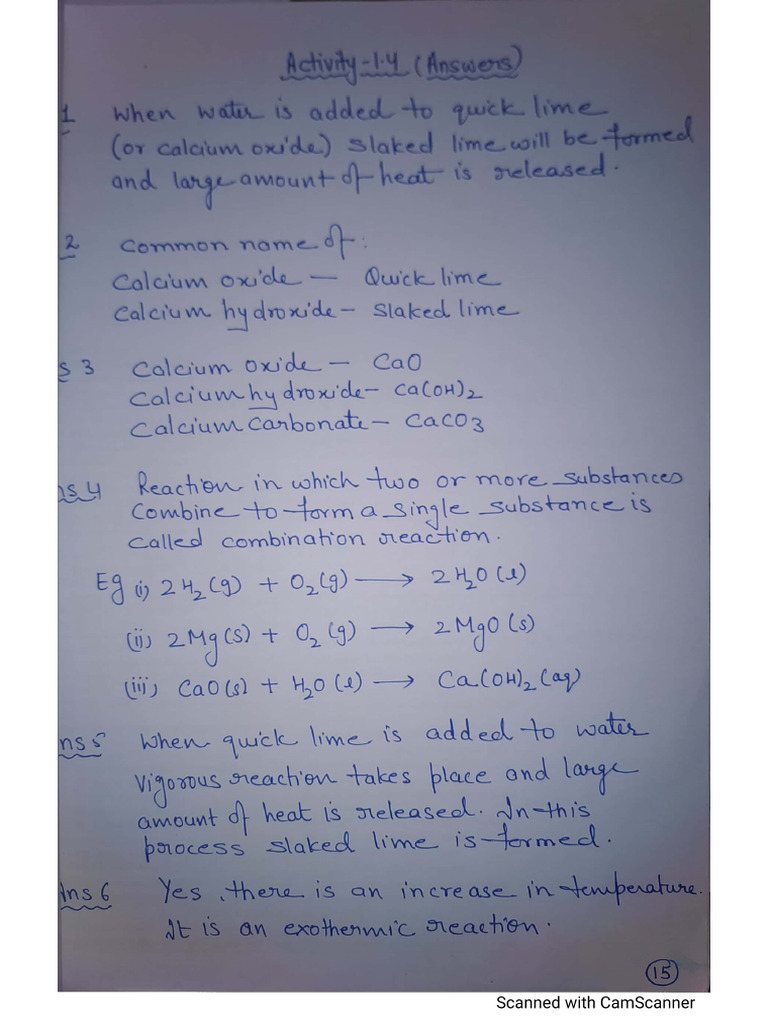 Activity-1.4 (Answers)
1 When water is added to quick lime
(or calcium oxide) slaked lime will be formed
and large amount of heat is released.
2 Common name of:
Calcium oxide — Quick lime
Calcium hydroxide - Slaked lime
s 3 Calcium oxide — CaO
Calcium hydroxide - Ca(OH)2
Calcium Carbonate - CaCO3
ns 4 Reaction in which two or more substances
combine to form a single substance is
called combination reaction.
Eg (i) 2H2(g) + O2(g) → 2H2O(l)
(ii) 2Mg(s) + O2(g) → 2MgO(s)
(iii) CaO(s) + H2O(l) → Ca(OH)2(aq)
ns 5 When quick lime is added to water
vigorous reaction takes place and large
amount of heat is released. In this
process slaked lime is formed.
Ans 6 Yes, there is an increase in temperature.
It is an exothermic reaction.
15
Scanned with CamScanner